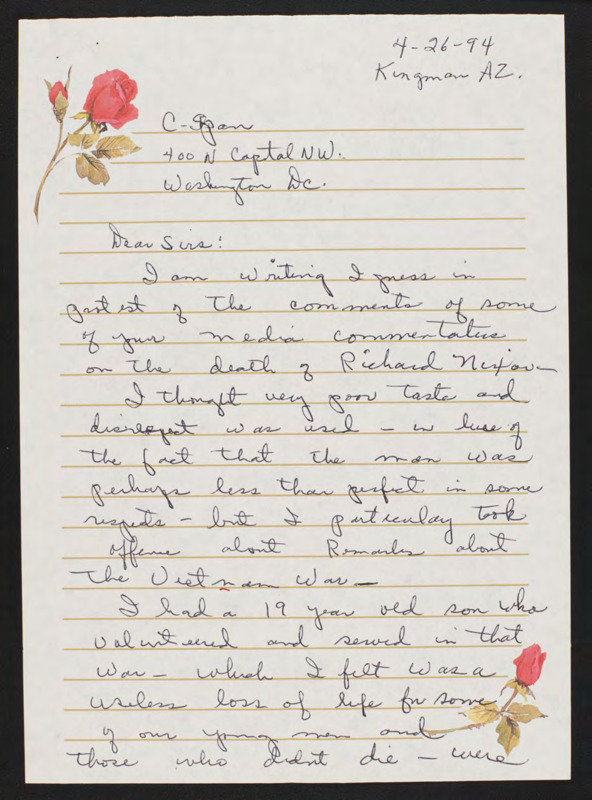 4-26-94
Kingman AZ.
C-Span
400 N Captal NW.
Washington Dc.
Dear Sirs:
I am writing I guess in
protest of the comments of some
of your media commentators
on the death of Richard Nixon
I thought very poor taste and
disrespect was used - in lieu of
the fact that the man was
perhaps less than perfect in some
respects - but I particulay took
offense about Remarks about
the Vietnam War -
I had a 19 year old son who
volunteered and served in that
War - which I felt was a
useless loss of life for some
of our young men and
those who didnt die - were